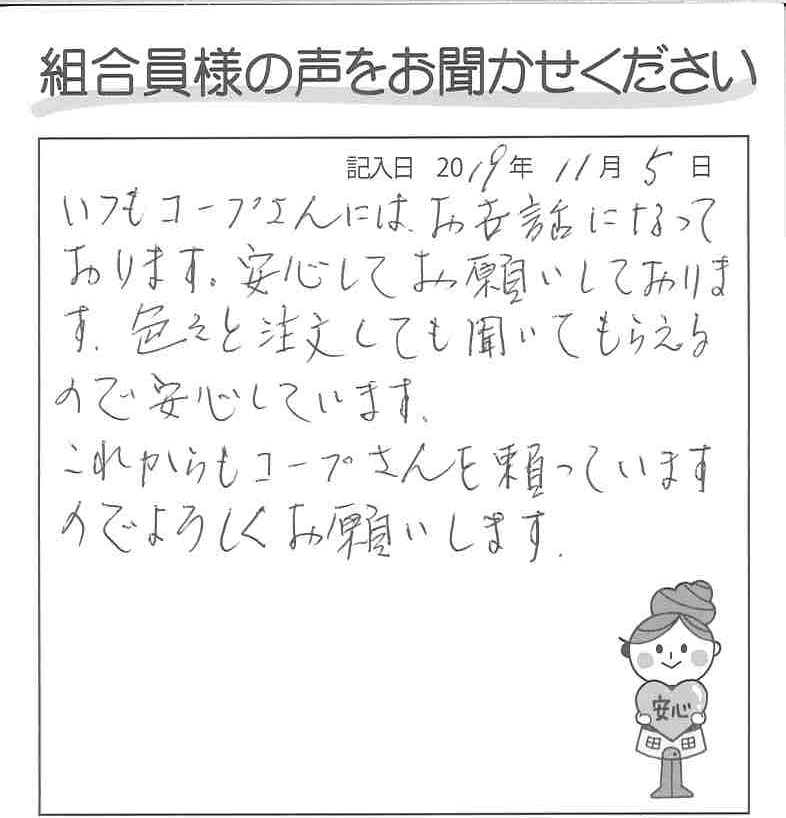 組合員様の声をお聞かせください
記入日 2019年 11月 5日
いつもコープさんには、お世話になって
おります。安心してお願いしておりま
す。色々と注文しても聞いてもらえる
ので安心しています。
これからもコープさんを頼っています
のでよろしくお願いします.
安心